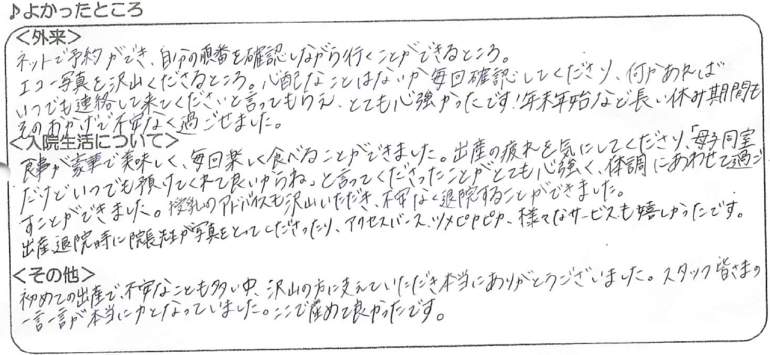 ♪よかったところ
<外来>
ネットで予約ができ、自分の順番を確認しながら行くことができるところ。
エコー写真を沢山くださるところ。心配なことはないか毎回確認してくださり、何かあれば
いつでも連絡して来てくださいと言ってもらえ、とても心強かったです!年末年始など長い休み期間も
そのおかげで不安なく過ごせました。
<入院生活について>
食事が豪華で美味しく、毎回楽しく食べることができました。出産の疲れを気にしてくださり、「母子同室
だけどいつでも預けてくれて良いからね」と言ってくださったことがとても心強く、体調にあわせて過ご
すことができました。授乳のアドバイスも沢山いただき、不安なく退院することができました。
出産退院時に院長先生が写真をとってくださったり、アクセスバース、ツメピカピカ、様々なサービスも嬉しかったです。
<その他>
初めての出産で、不安なことも多い中、沢山の方に支えていただき本当にありがとうございました。スタッフ皆さまの
一言一言が本当に力となっていました。ここで産めて良かったです。